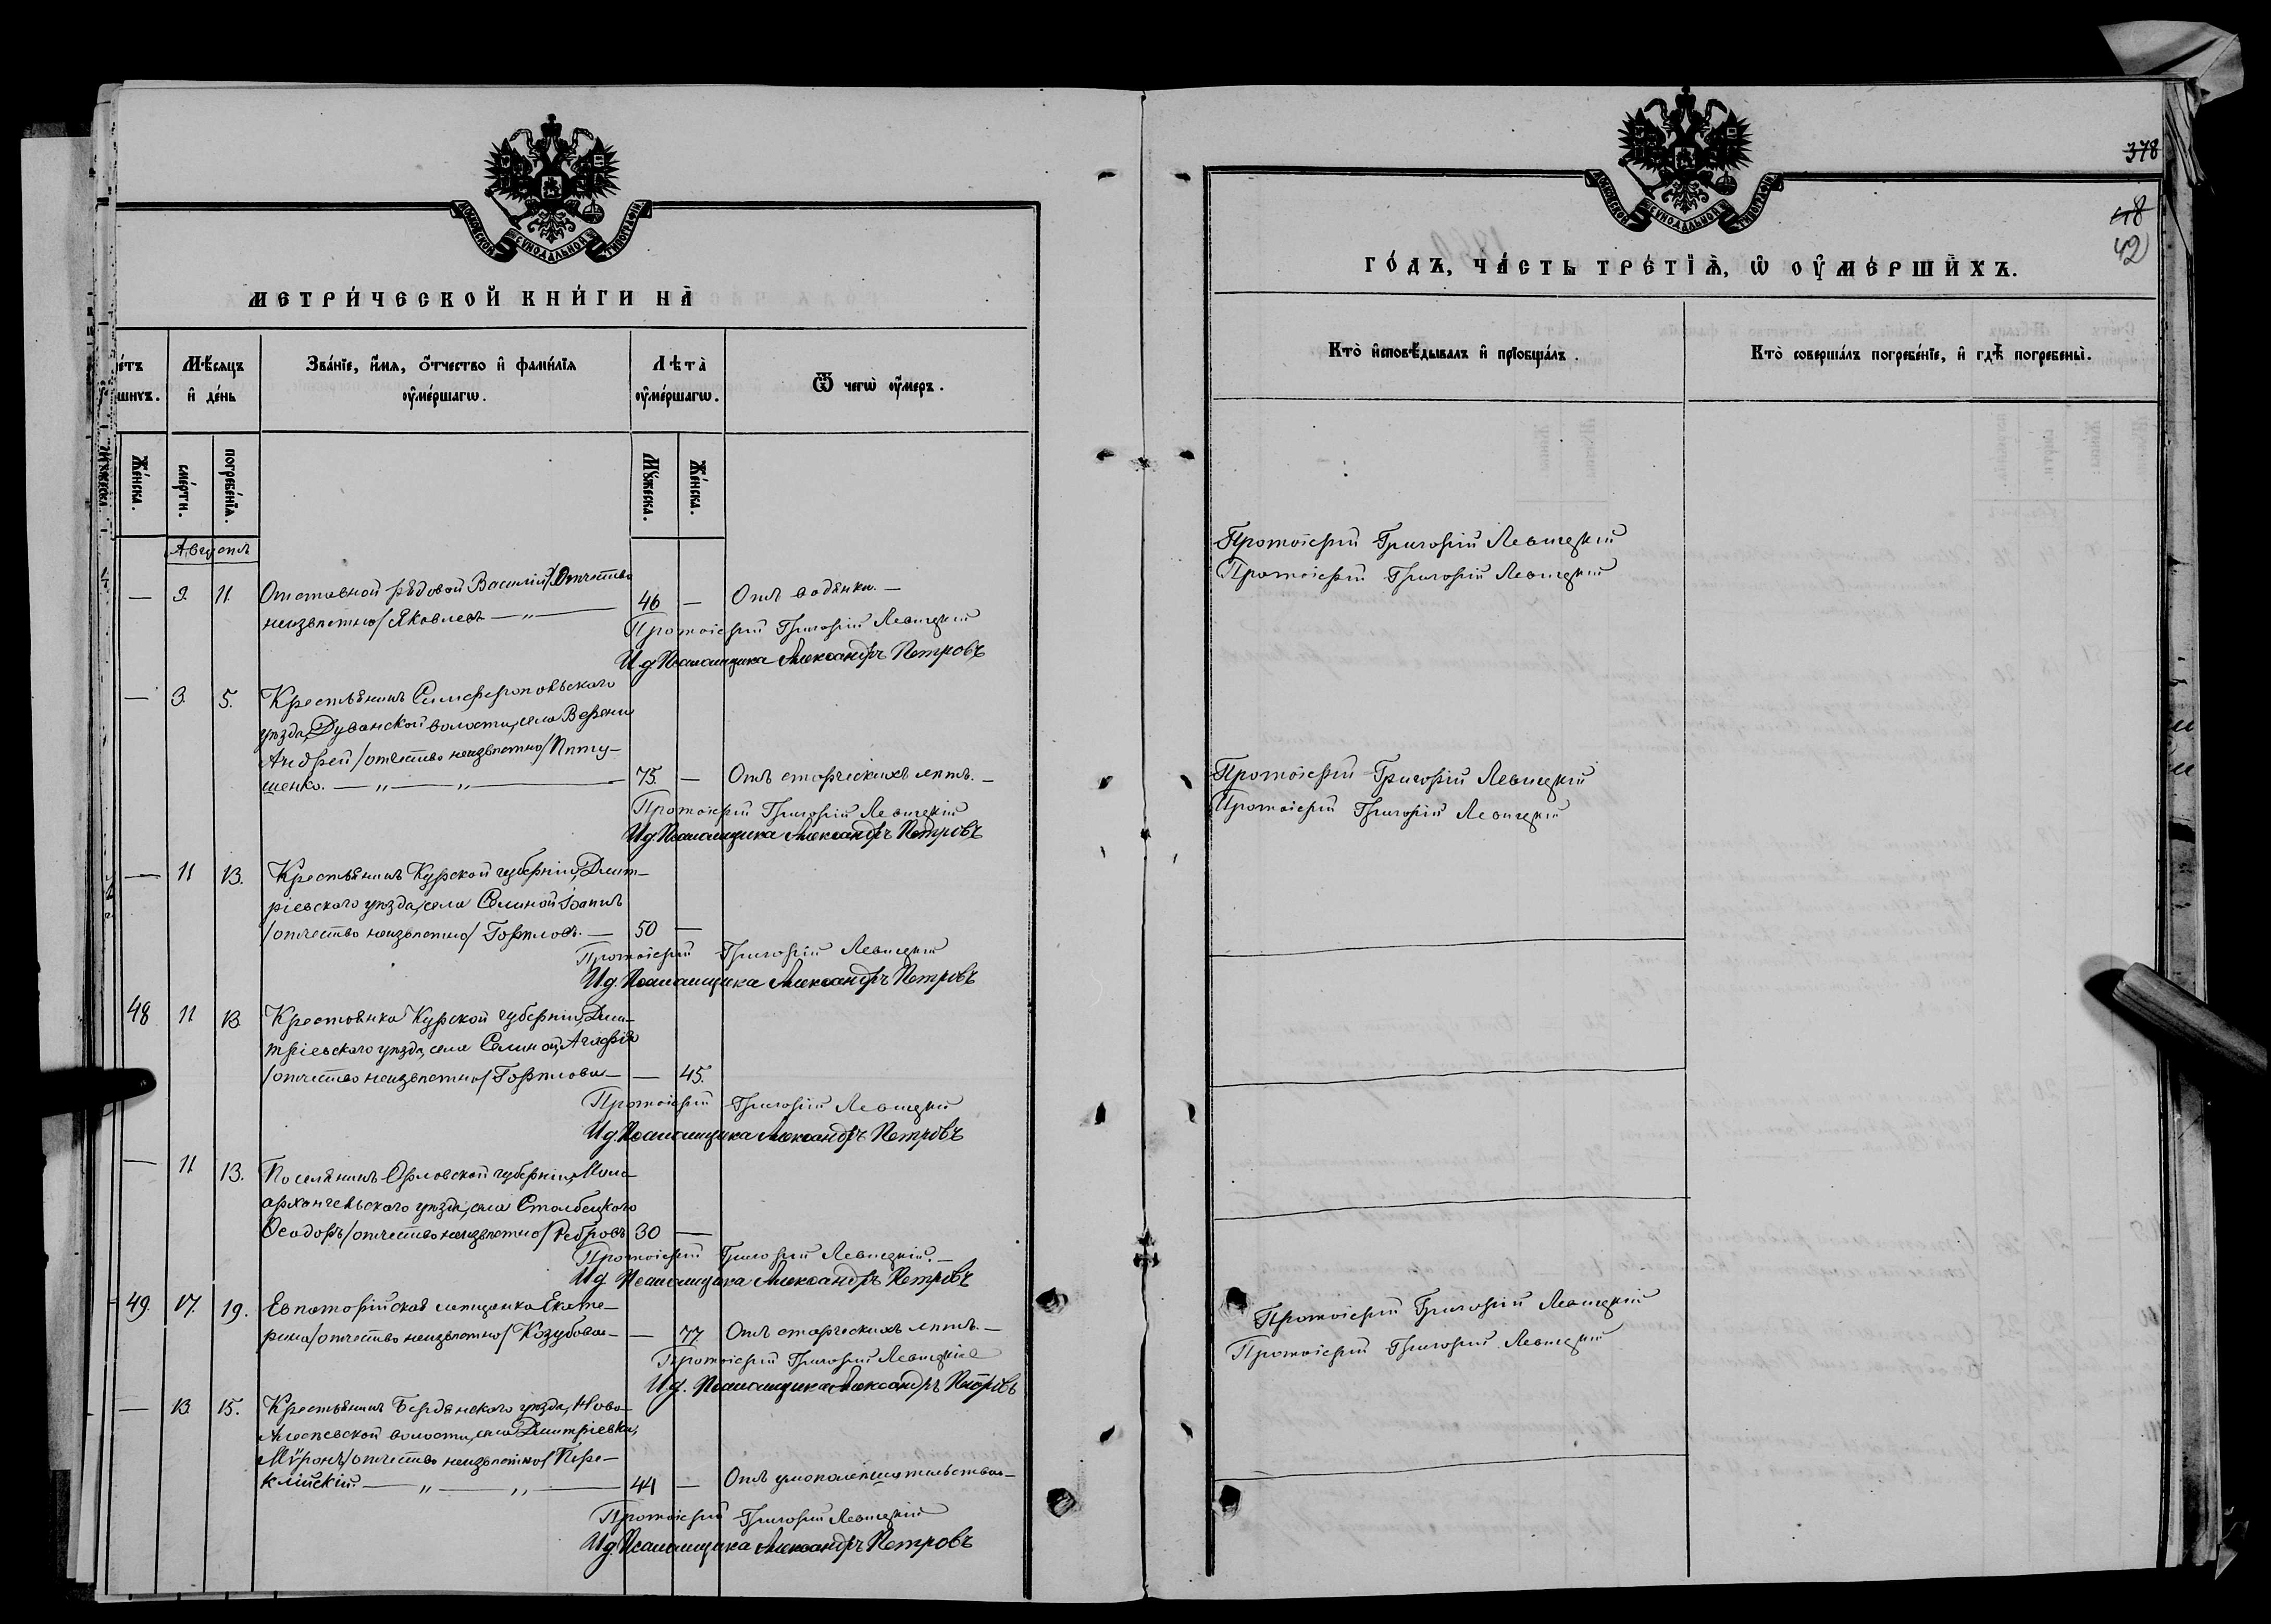 МОСКОВСКОЙ СУНОДАЛЬНОЙ ТИПОГРАФІИ
МЕТРИ́ЧЕСКОЙ КНИ́ГИ НА̀
Мѣ́сяцъ и҆ де́нь
Зва́нїе, и҆́мя, ѻ҆́тчество и҆ фами́лїя ᲂу҆ме́ршагѡ.
Лѣта̀ ᲂу҆ме́ршагѡ.
Ѿ чегѡ̀ ᲂу҆́меръ.
Же́нска.
сме́рти.
погребе́нїѧ.
Мꙋ́жеска.
Же́нска.
Августъ
— 9. 11. Отставной рядовой Василій/отчество 46 — Отъ водянки. —
неизвѣстно/ Яковлевъ — „ —
Протоіерей Григорій Левицкій
И д. Псаломщика Александръ Петровъ
— 3. 5. Крестьянинъ Симферопольскаго
уѣзда, Дуванской волости, села
Андрей /отчество неизвѣстно/ Пету-
шенко. — „ — „ — 75. — Отъ старческихъ лѣтъ. —
Протоіерей Григорій Левицкій
И д. Псаломщика Александръ Петровъ
— 11 13. Крестьянинъ Курской губерніи, Дмит-
ріевскаго уѣзда, села Селиной Іоаннъ
/отчество неизвѣстно/ — 50 —
Протоіерей Григорій Левицкій
И д. Псаломщика Александръ Петровъ
48 11 13 Крестьянка Курской губерніи, Дми-
тріевскаго уѣзда, села Селиной, Агафія
/отчество неизвѣстно/ — — 45.
Протоіерей Григорій Левицкій
И д. Псаломщика Александръ Петровъ
— 11 13. Поселянинъ Орловской губерніи, Мало-
архангельскаго уѣзда, села Столбецкаго
Ѳеодоръ /отчество неизвѣстно/ Ребровъ 30 —
Протоіерей Григорій Левицкій. —
И д. Псаломщика Александръ Петровъ
49. 17. 19. Евпаторійская мѣщанка Екате-
рина /отчество неизвѣстно/ Козубова — — 77. Отъ старческихъ лѣтъ. —
Протоіерей Григорій Левицкій
И д. Псаломщика Александръ Петровъ
— 13 15. Крестьянинъ Бердянскаго уѣзда, Ново-
Алексѣевской волости, села Дмитріевки,
Мѵронъ /отчество неизвѣстно/ Пере-
клійскій. — „ — „ — 44 — Отъ умопомѣшательства —
Протоіерей Григорій Левицкій
И д. Псаломщика Александръ Петровъ
378
42
МОСКОВСКОЙ СУНОДАЛЬНОЙ ТИПОГРАФІИ
ГО́ДЪ, ЧА́СТЬ ТРЕ́ТЇѦ, Ѡ҆ ОУ҆МЕ́РШИХЪ.
Кто̀ и҆сповѣ́дывалъ и҆ прїѡбща́лъ.
Кто̀ соверша́лъ погребе́нїе, и҆ гдѣ̀ погребены̀.
Протоіерей Григорій Левицкій
Протоіерей Григорій Левицкій
Протоіерей Григорій Левицкій
Протоіерей Григорій Левицкій
Протоіерей Григорій Левицкій
Протоіерей Григорій Левицкій